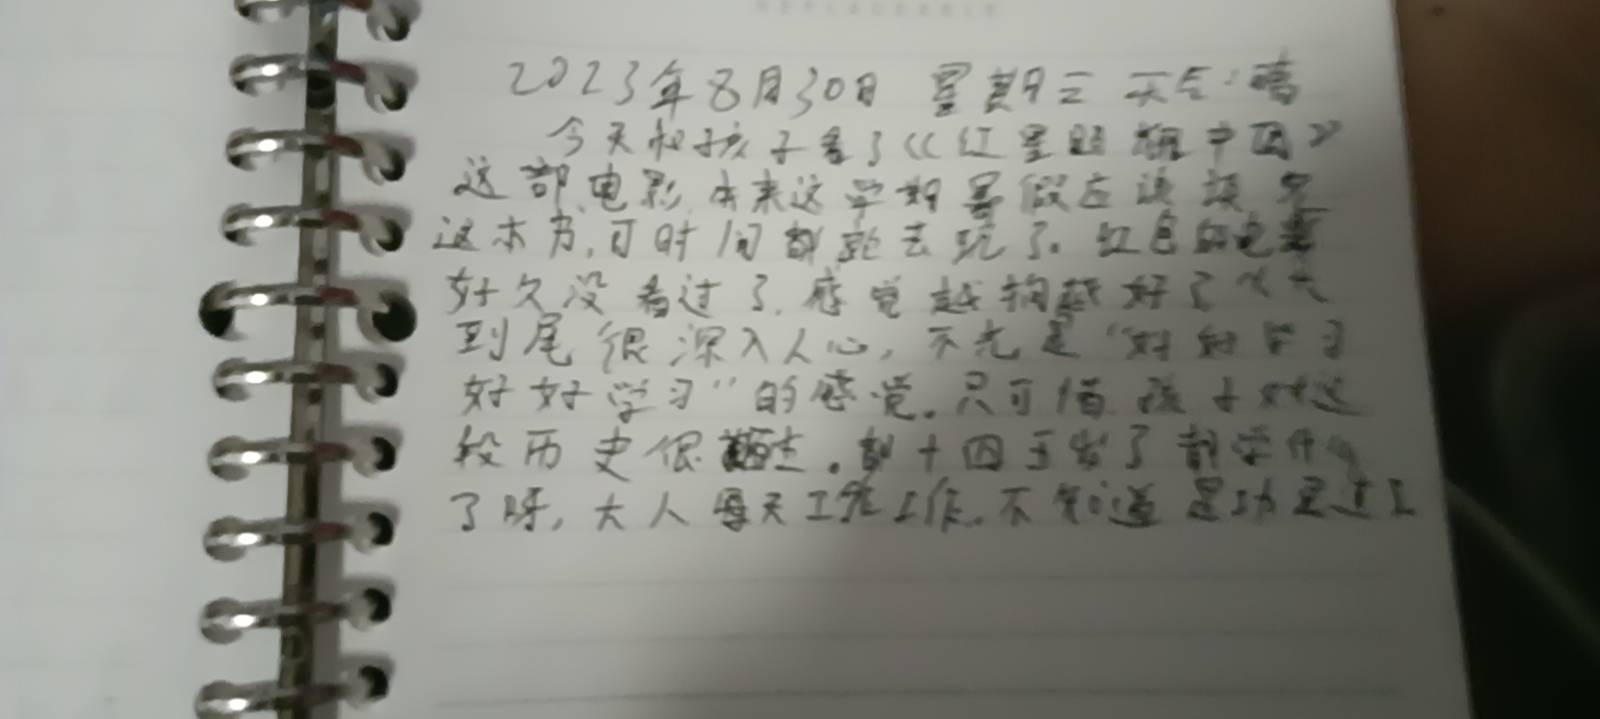 2023年8月30日 星期三 天气:晴
今天和孩子看了《红星照耀中国》
这部电影,本来这学期暑假应该读完
这本书,可时间都跑去玩了。红色的电影
好久没看过了,感觉越拍越好了
到尾很深入人心,不光是“好好学习
好好学习”的感觉。只可惜孩子对这
段历史很。都十四五岁了都学什么
了呀,大人每天工作工作,不知道是功是过